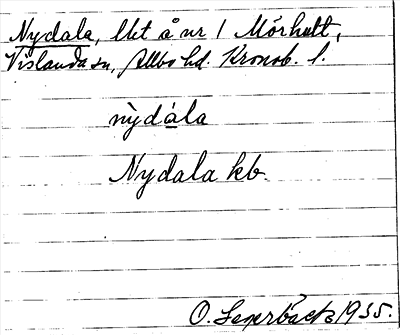 Nydala, lht å nr 1 Mörhult,
Vislanda sn, Allbo hd. Kronob. l.
nỳdála
Nydala kb
O. 1935.